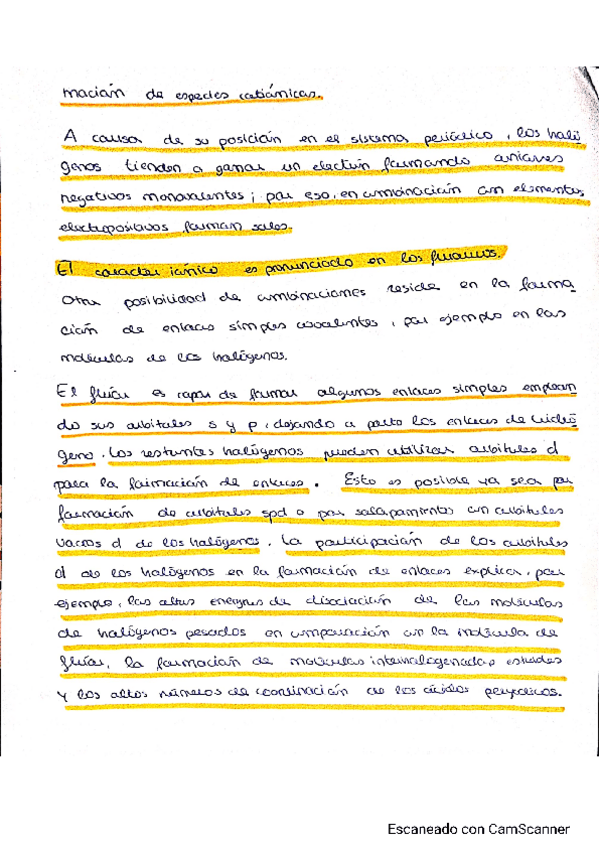 mación de especies catiónicas.
A causa de su posición en el sistema periódico, los haló
genos tienden a ganar un electrón formando aniones
negativos monovalentes; por eso, en combinación con elementos
electropositivos forman sales.
El caracter iónico es pronunciado en los fluoruros.
Otra posibilidad de combinaciones reside en la forma
ción de enlaces simples covalentes, por ejemplo en las
moléculas de los halógenos.
El flúor es capaz de formar algunos enlaces simples emplean
do sus orbitales s y p, dejando a parte los enlaces de hidró
geno. Los restantes halógenos pueden utilizar orbitales d
para la formación de enlaces. Esto es posible ya sea por
formación de orbitales spd o por solapamientos con orbitales
vacíos d de los halógenos. La participación de los orbitales
d de los halógenos en la formación de enlaces explica, por
ejemplo, las altas energías de disociación de las moléculas
de halógenos pesados en comparación con la molécula de
flúor, la formación de moléculas interhalogenadas estables
y los altos números de coordinación de los ácidos peryódicos.
Escaneado con CamScanner